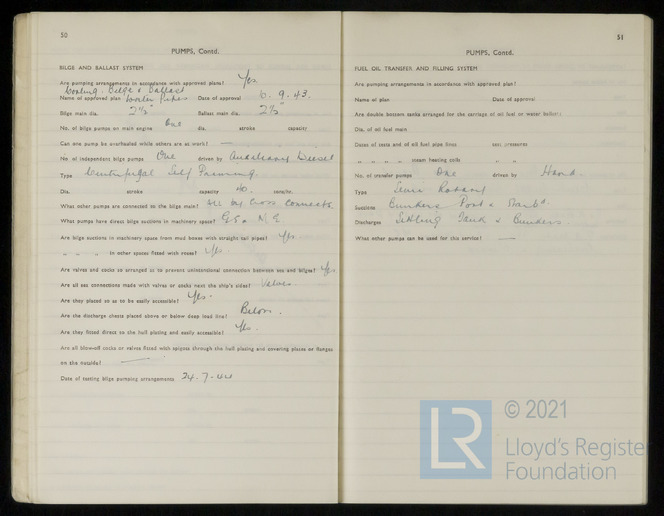 50
PUMPS, Contd.
BILGE AND BALLAST SYSTEM
Are pumping arrangements in accordance with approved plans? Yes
Cooling, Bilge & Ballast
Name of approved plan Water Pipes Date of approval 6.9.43.
Bilge main dia. 2½" Ballast main dia. 2½"
No. of bilge pumps on main engine One dia. stroke capacity
Can one pump be overhauled while others are at work? —
No. of independent bilge pumps One driven by Auxiliary Diesel
Type Centrifugal Self Priming.
Dia. stroke capacity 40. tons/hr.
What other pumps are connected to the bilge main? All by Cross Connects.
What pumps have direct bilge suctions in machinery space? G.S. & M.E.
Are bilge suctions in machinery space from mud boxes with straight tail pipes? Yes
" " " in other spaces fitted with roses? Yes
Are valves and cocks so arranged as to prevent unintentional connection between sea and bilges? Yes.
Are all sea connections made with valves or cocks next the ship's sides? Valves.
Are they placed so as to be easily accessible? Yes.
Are the discharge chests placed above or below deep load line? Below.
Are they fitted direct to the hull plating and easily accessible? Yes.
Are all blow-off cocks or valves fitted with spigots through the hull plating and covering plates or flanges
on the outside? —
Date of testing bilge pumping arrangements 24-7-44
51
PUMPS, Contd.
FUEL OIL TRANSFER AND FILLING SYSTEM
Are pumping arrangements in accordance with approved plan?
Name of plan Date of approval
Are double bottom tanks arranged for the carriage of oil fuel or water ballast?
Dia. of oil fuel main
Dates of tests and of oil fuel pipe lines test pressures
" " " " steam heating coils " "
No. of transfer pumps One driven by Hand.
Type Semi Rotary
Suctions Bunkers Port & Starbd.
Discharges Settling Tank & Bunkers.
What other pumps can be used for this service? —
© 2021
LR
Lloyd's Register
Foundation